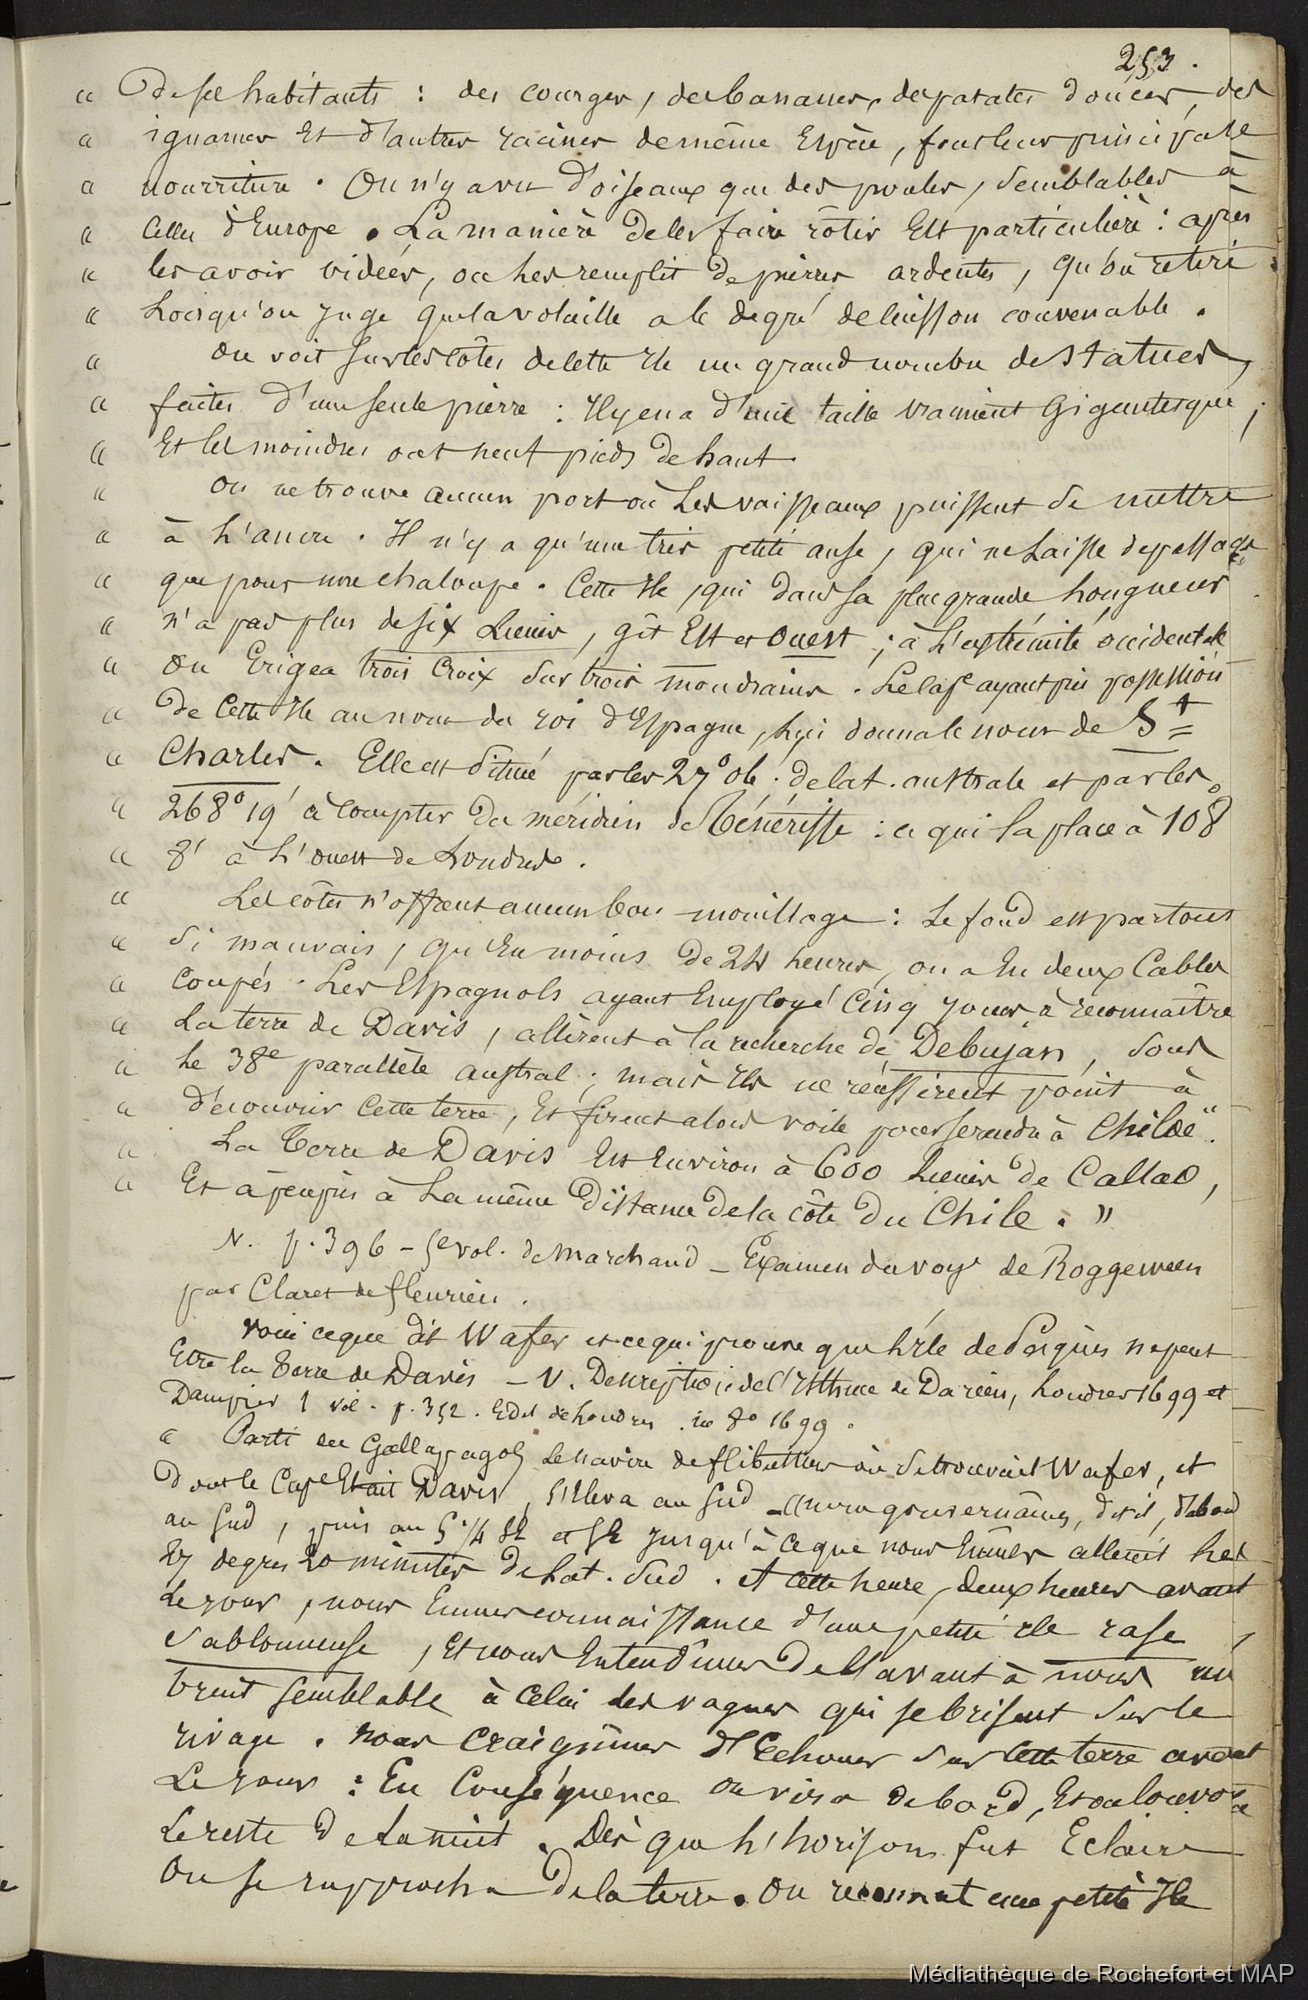 253.
" de ses habitants : des courges, des bananes, des patates douces, des
" ignames et d'autres racines de même espèce, font leur principale
" nourriture. On n'y a vu d'oiseaux que des poules, semblables à
" celles d'Europe. La manière de les faire rôtir est particulière : après
" les avoir vidées, on les remplit de pierres ardentes, qu'on retire
" Lorsqu'on juge que la volaille a le degré de cuisson convenable.
" on voit sur les côtes de cette Ile un grand nombre de statues,
" faites d'une seule pierre : Il y en a d'une taille vraiment Gigantesque ;
" Et les moindres ont neuf pieds de haut.
" on ne trouve aucun port où Les vaisseaux puissent se mettre
" à L'ancre. Il n'y a qu'une très petite anse, qui ne Laisse de passage
" que pour une chaloupe. Cette Ile, qui dans sa plus grande Longueur
" n'a pas plus de six Lieues, gît Est et ouest ; à L'extrémité occidentale
" on Erigea trois Croix sur trois mondrains. Le Cap.e ayant pris possession
" de Cette Ile au nom du roi d'Espagne, lui donna le nom de St
" Charles. Elle est située par les 27° 06' de lat. australe et par les
" 268° 19' à compter du méridien de Ténériffe : ce qui la place à 108°
" 8' à L'ouest de Londres.
" Les côtes n'offrent aucun bon mouillage : Le fond est partout
" si mauvais, qu'En moins de 24 heures, on a Eu deux Cables
" Coupés. Les Espagnols ayant Employé Cinq jours à reconnaître
" La terre de Davis, allèrent à la recherche de Debujan, sous
" Le 38e parallèle austral ; mais Ils ne réussirent point à
" découvrir Cette terre, Et firent alors voile pour se rendre à Chiloé".
" La Terre de Davis Est Environ à 600 Lieues de Callao,
" Et à peu près à La même Distance de la côte du Chile. "
N. p. 396 – 5e vol. de Marchand – Examen du voy. de Roggeween
par Claret de fleurieu.
voici ce que dit Wafer et ce qui prouve que L'île de Pâques ne peut
Etre la Terre de Davis – V. Description de l'Isthme de Darien, Londres 1699 et
Dampier 1 vol. p. 352. Edit de Londres in 8° 1699.
" Parti des Gallapagos Le navire de flibustiers où se trouvait Wafer, et
Dont le Cap.e Etait Davis, s'éleva au sud – " nous gouvernâmes, dit-il, d'abord
au sud, puis au S. 1/4 SE et SE jusqu'à ce que nous Eûmes atteint Les
27 degrés 20 minutes de Lat. Sud. A cette heure, deux heures avant
Le jour, nous Eumes connaissance d'une petite Ile rase,
sablonneuse, Et nous Entendîmes de l'avant à nous un
bruit semblable à celui des vagues qui se brisent sur le
rivage. nous Craignîmes d'Echouer sur Cette terre avant
Le jour : En Conséquence on vira de bord, Et on louvoya
Le reste de la nuit. Dès que L'horison fut Eclairé
On se rapprocha de la terre. On reconnut une petite Ile
Médiathèque de Rochefort et MAP